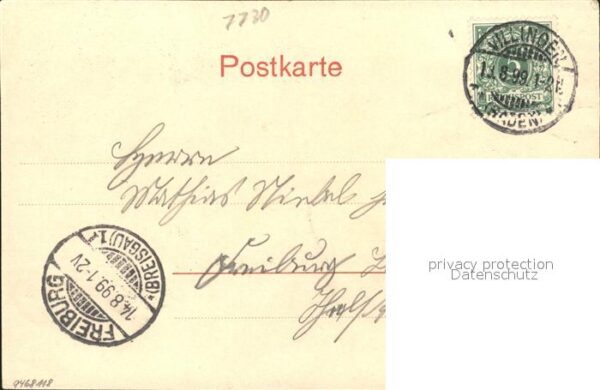 7730
Postkarte
VILLINGEN
13.8.99.1-2N.
(BADEN)
5
REICHSPOST
Herrn
Mathias Stiebel
Freiburg
FREIBURG
14.8.99.1-2V
*(BREISGAU)1*
privacy protection
Datenschutz
9468118